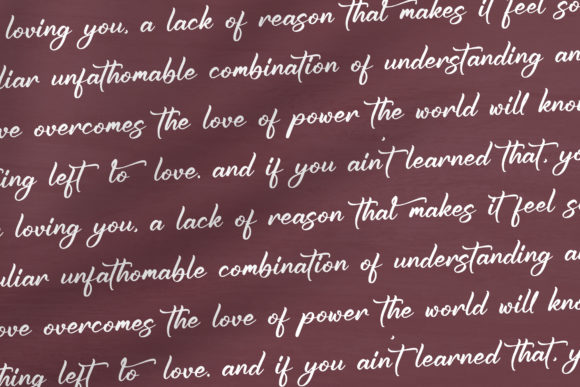 loving you, a lack of reason that makes it feel so
liar unfathomable combination of understanding an
ve overcomes the love of power the world will kno
ing left to love. and if you ain't learned that, yo
loving you, a lack of reason that makes it feel so
uliar unfathomable combination of understanding a
ove overcomes the love of power the world will kn
thing left to love. and if you ain't learned that, y